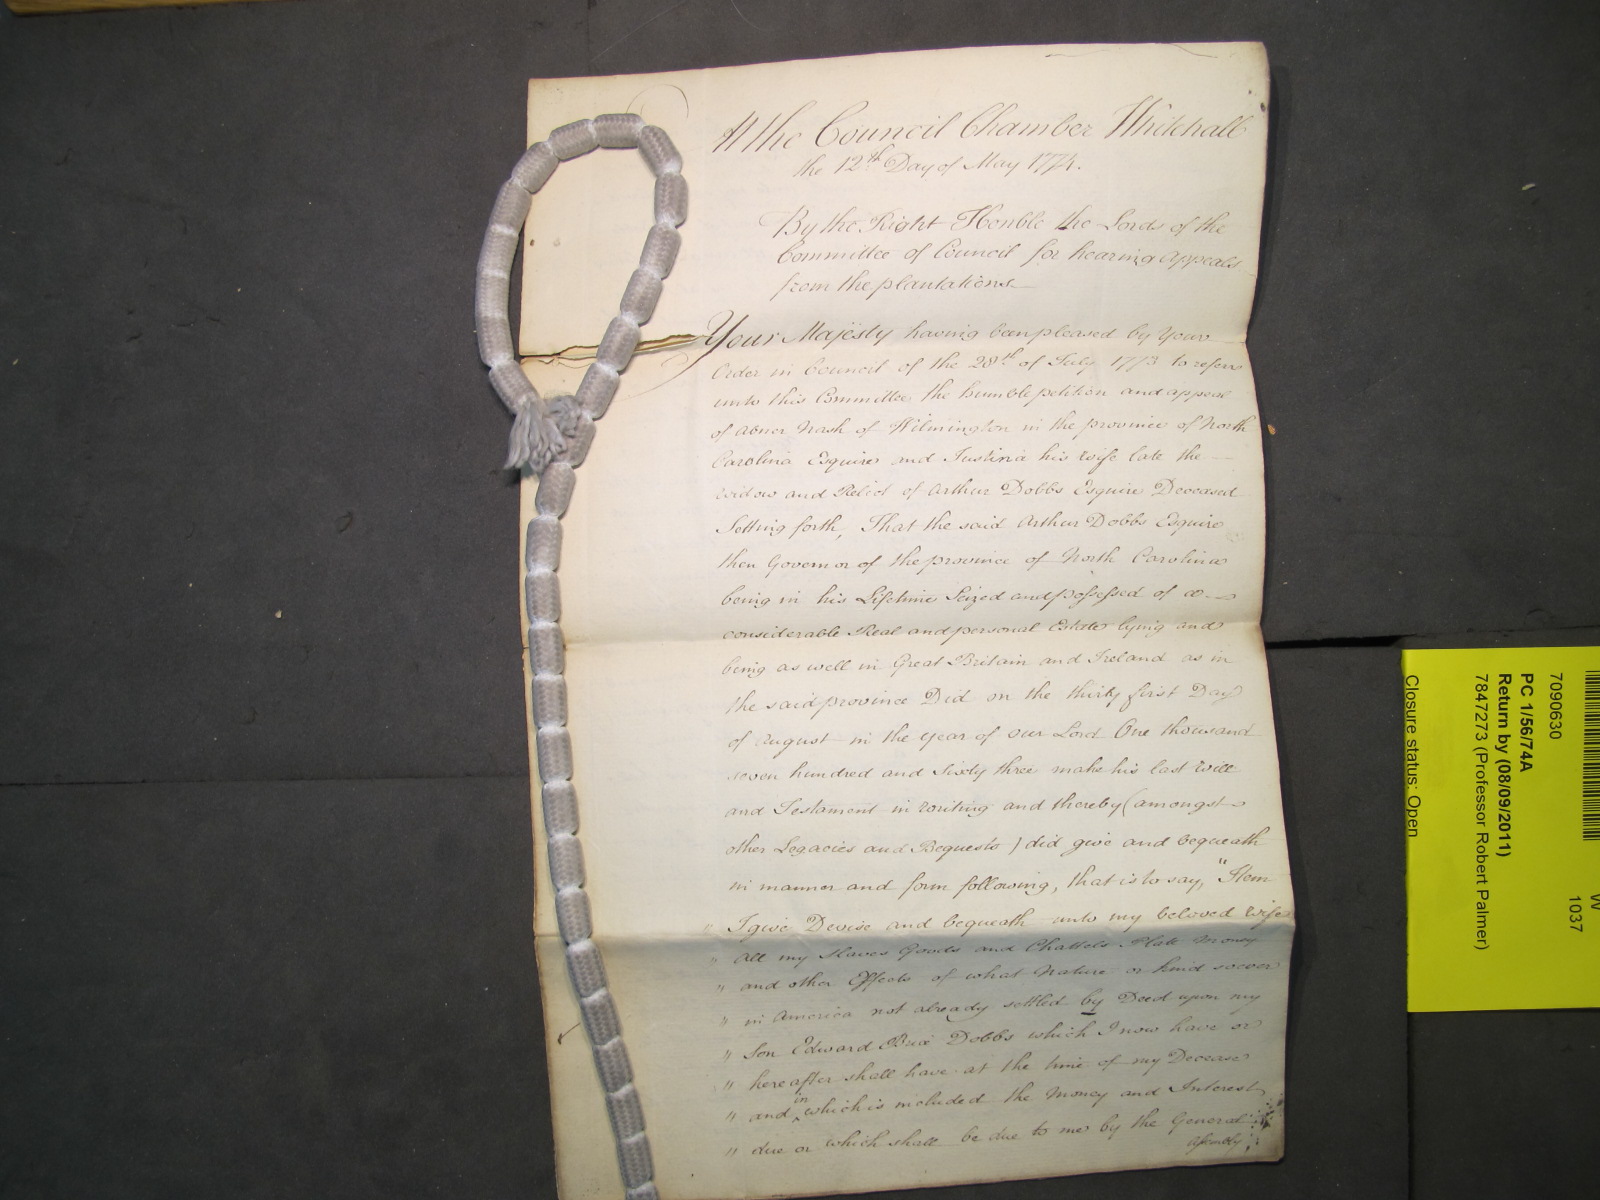 At the Council Chamber Whitehall
the 12th Day of May 1774.
By the Right Honble the Lords of the
Committee of Council for hearing Appeals
from the plantations
Your Majesty having been pleased by Your
Order in Council of the 28th of July 1773 to referr
unto this Committee the humble petition and appeal
of Abner Nash of Wilmington in the province of North
Carolina Esquire and Justina his wife late the
widow and Relict of Arthur Dobbs Esquire Deceased
Setting forth, That the said Arthur Dobbs Esquire
then Governor of the province of North Carolina
being in his Lifetime Seized and possessed of a
considerable Real and personal Estate lying and
being as well in Great Britain and Ireland as in
the said province Did on the thirty first Day
of August in the year of our Lord One thousand
seven hundred and Sixty three make his last will
and Testament in writing and thereby (amongst
other Legacies and Bequests) did give and bequeath
in manner and form following, that is to say, "Item
" I give Devise and bequeath unto my beloved wife
" All my Slaves Goods and Chattels Plate Money
" and other Effects of what Nature or kind soever
" in America not already settled by Deed upon my
" Son Edward Brice Dobbs which I now have or
" hereafter shall have at the time of my Decease
" and in which is included the Money and Interest
" due or which shall be due to me by the General
Assembly
W
1037
7090630
PC 1/56/74A
Return by (08/09/2011)
7847273 (Professor Robert Palmer)
Closure status: Open